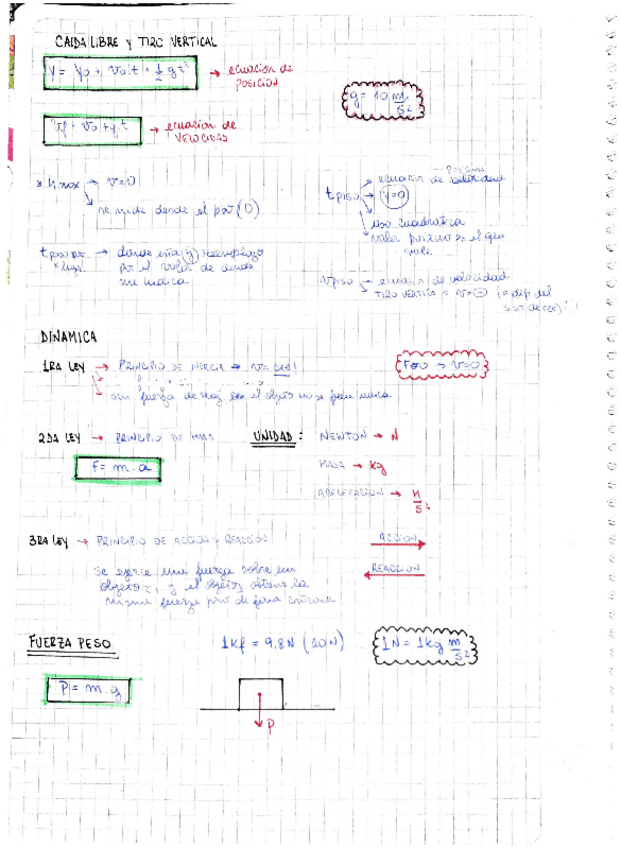 CAIDA LIBRE Y TIRO VERTICAL
Y = Yo + Vo.t + 1/2 g t² → ecuación de POSICION
g = 10 m/s²
Vf + Vo + g.t → ecuacion de VELOCIDAD
H max → v=0
se mide desde el
(0)
t piso → ecuación de velocidad
Y=0
uso cuadratica
valor positivo es el que
→ donde esta (y) reemplazo
por el valor de donde
me indica
V piso → ecuación de velocidad
TIRO VERTICAL
DINAMICA
1RA LEY → PRINCIPIO DE INERCIA →
F=0 → v=0
sin fuerza de
el objeto no se
nunca
2DA LEY → PRINCIPIO DE MASA
UNIDAD: NEWTON → N
F = m . a
MASA → kg
ACELERACION → M/s²
3RA LEY → PRINCIPIO DE ACCION Y REACCION
ACCION
Se ejerce una fuerza sobre un
REACCION
objeto, y el objeto obtiene la
misma fuerza pero de forma contraria
FUERZA PESO
1kf = 9.8N (10N)
1N = 1kg m/s²
P = m . g
P